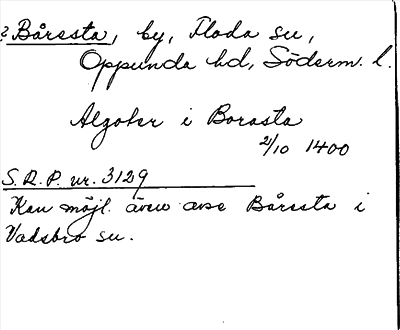 ? Båresta, by, Floda sn,
Oppunda hd, Söderm. l.
Algoter i Borasta
2/10 1400
S.R.P. nr. 3129
Kan möjl. även avse Båresta i
Vadsbro sn.